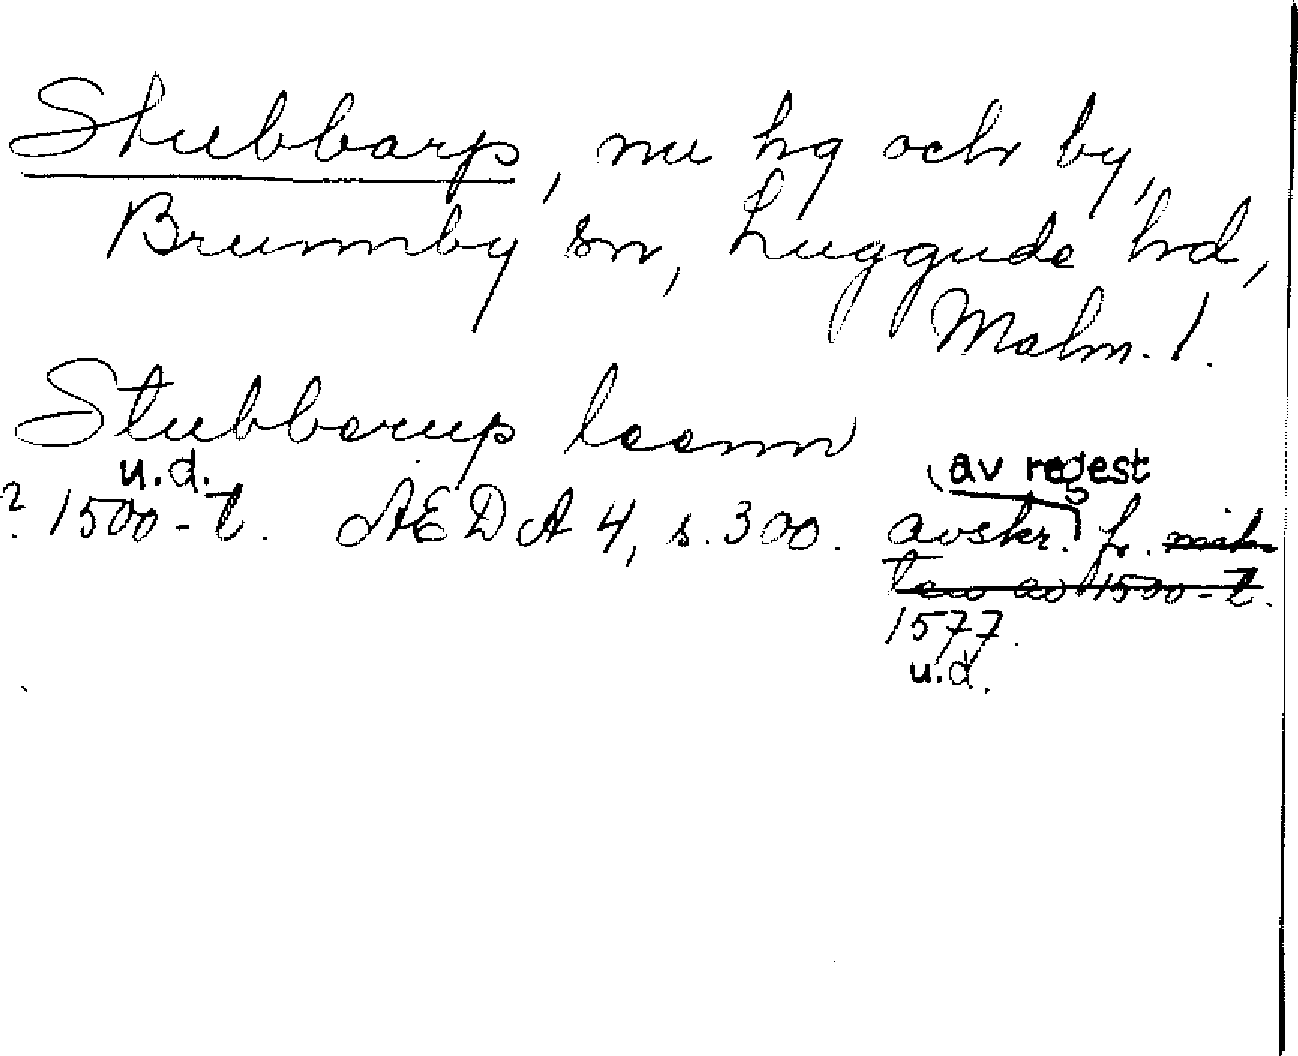 Stubbarp, nu hg och by,
Brunnby sn, Luggude hd,
Malm. l.
Stubberup leenn
u.d. av regest
? 1500-t. AEDA 4, s. 300. avskr. fr. mit-
ten av 1500-t.
1577.
u.d.